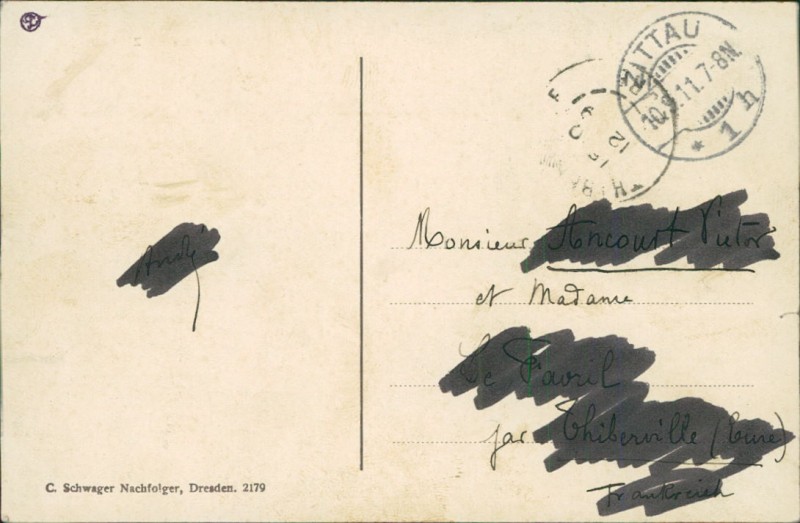 ZITTAU
10.9.11.7-8N.
* 1 h
André
Monsieur Ancourt Victor
et Madame
Le Favril
par Thiberville (Eure)
Frankreich
C. Schwager Nachfolger, Dresden. 2179